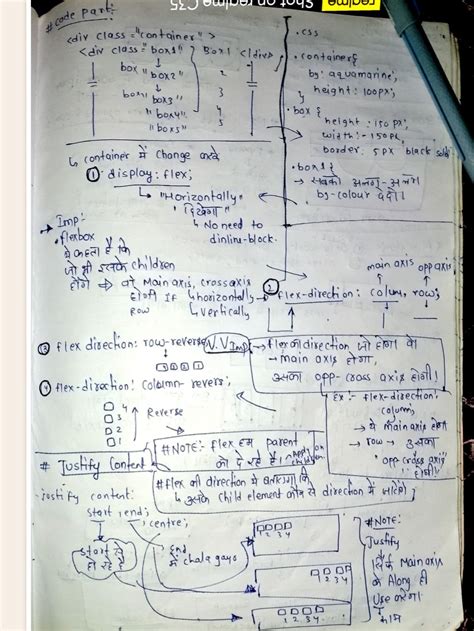 Shot on realme C35
realme
# Code part:
<div class="container">
<div class="box1"> Box1 </div>
box "box2" 2
box "box3" 3
"box4" 4
"box5" 5
• css
• container{
bg: aquamarine;
height: 100px;
}
• box {
height: 150px;
width: 150px;
border: 5px black solid
}
• box1 {
→ सबको अलग-अलग
bg-colour दे दी।
↳ container में change करके
① display: flex;
↳ "Horizontally"
"दिखेगा"
↳ No need to
inline-block.
→ Imp:
• flexbox
ये कहता है कि
जो भी इसके children
होंगे ⇒ वो main axis, cross axis
होगी IF ↳ horizontally
row ↳ vertically
main axis opp axis
② flex-direction: column, row;
③ flex direction: row-reverse;
④ flex-direction: column-revers;
4
3
2
1
↑ Reverse
V.V Imp → flex का direction जो होगा वो
→ main axis होगा,
उसका opp- cross axis होगी।
Ex:- flex-direction:
column;
→ ये main axis होगा
→ row → उसका
"opp cross axis"
होगी
#NOTE:- flex हम parent
को दे रहे हैं।
# flex की direction में
↳ उसके child element कौन से direction में जाएंगे
# Justify Content
- justify content:
start, end;
centre;
start से
हो रहे हैं
End
में चला गया
1 2 3 4
1 2 3 4
1 2 3 4
#NOTE:
Justify
सिर्फ main axis
के Along ही
use करेगा।